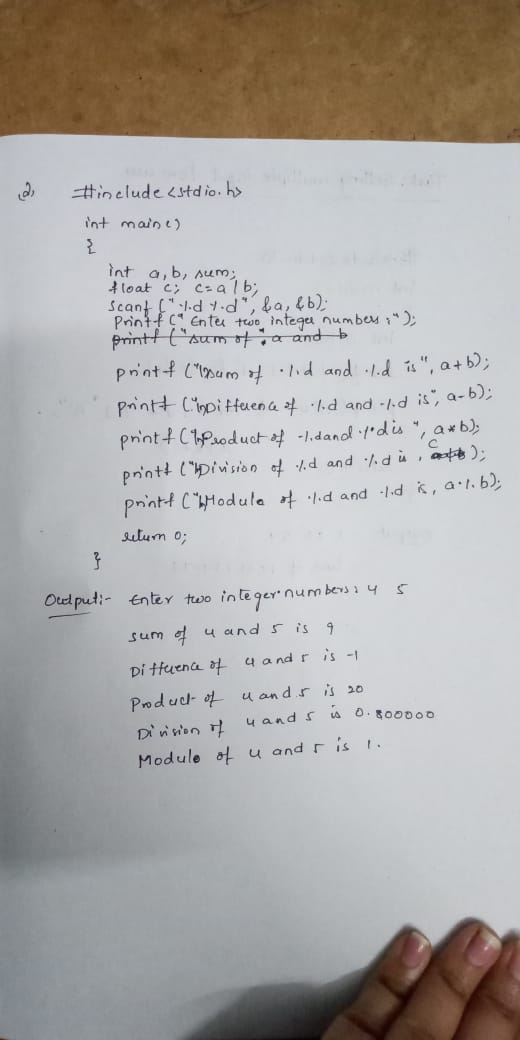 2, #include <stdio.h>
int main()
{
int a, b, sum;
float c; c = a / b;
scanf ("%d %d", &a, &b);
printf (" Enter two integer numbers : ");
printf (" sum of : a and b
printf ("\nsum of %d and %d is", a+b);
printf ("\nDiffuence of %d and %d is", a-b);
printf ("\nProduct of %d and %d is ", a*b);
printf ("\nDivision of %d and %d is , c );
printf ("\nModule of %d and %d is, a%b);
return 0;
}
Output:- Enter two integer numbers : 4 5
sum of 4 and 5 is 9
Diffuence of 4 and 5 is -1
Product of 4 and 5 is 20
Division of 4 and 5 is 0.800000
Module of 4 and 5 is 1.